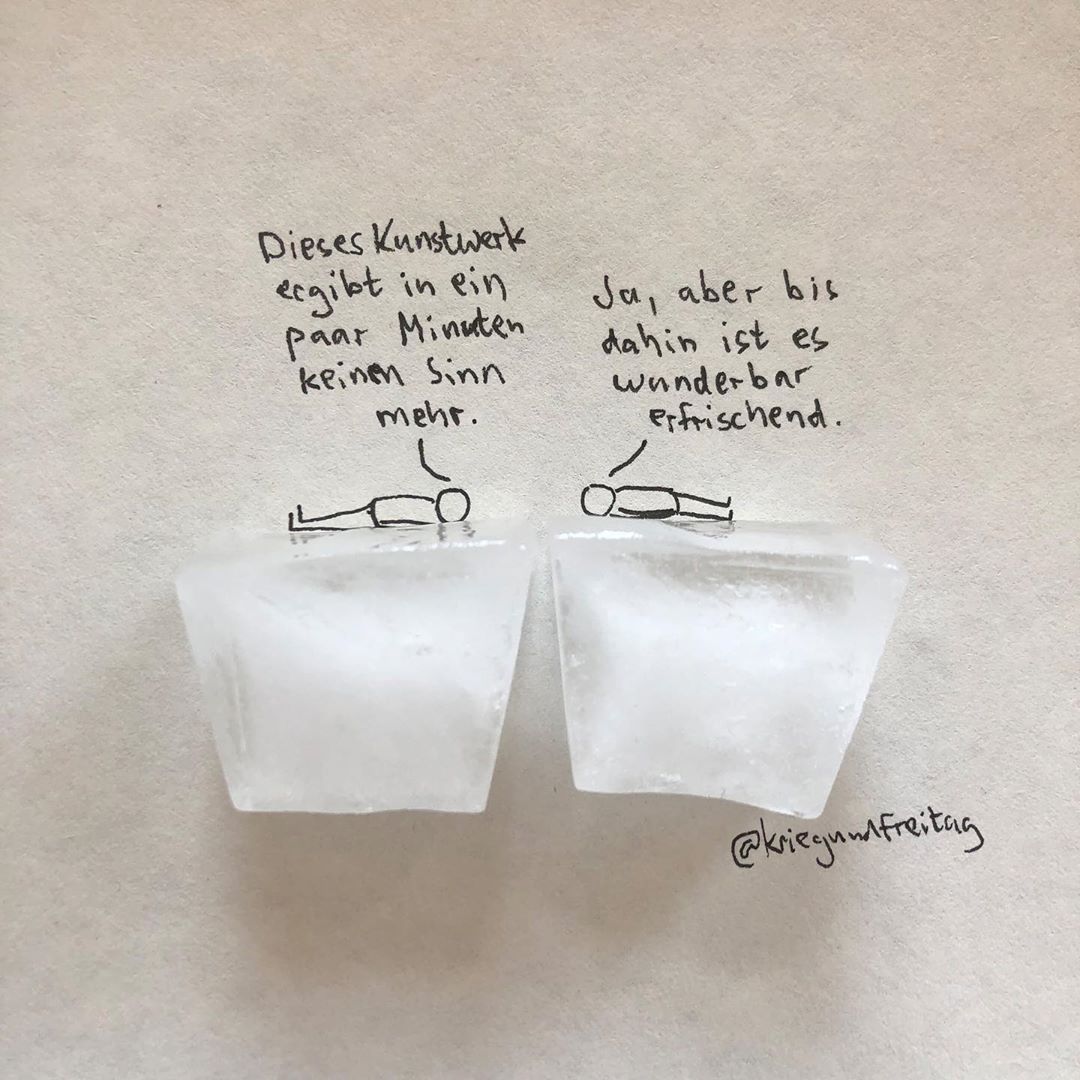 Dieses Kunstwerk
ergibt in ein
paar Minuten
keinen Sinn
mehr.
Ja, aber bis
dahin ist es
wunderbar
erfrischend.
@kriegundfreitag